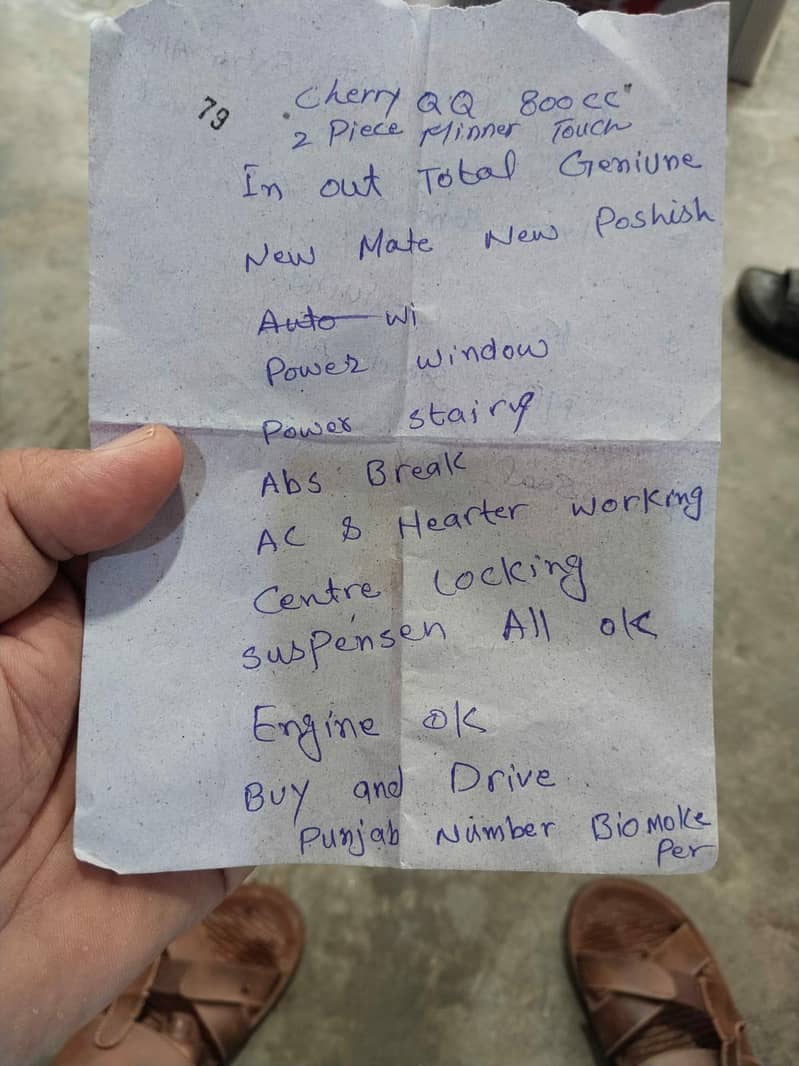 79
Cherry QQ 800cc"
2 Piece Minner Touch
In out Total Geniune
New Mate New Poshish
Auto wi
Power window
Power stairg
Abs Break
AC & Hearter working
Centre Locking
suspensen All ok
Engine ok
Buy and Drive
Punjab Number Biomoke
Per